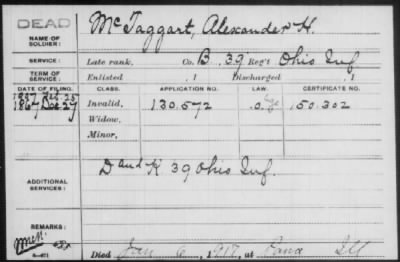 DEAD
NAME OF SOLDIER:
McTaggart, Alexander H.
SERVICE:
Late rank, Co. B, 39 Reg't Ohio Inf
TERM OF SERVICE:
Enlisted , 1 Discharged , 1
DATE OF FILING. CLASS. APPLICATION NO. LAW. CERTIFICATE NO.
1867 Dec 27 Invalid, 130.572 150.302
Widow,
Minor,
ADDITIONAL SERVICES:
D and K 39 Ohio Inf.
REMARKS:
Died Jan 6, 1917, at Pana Ill